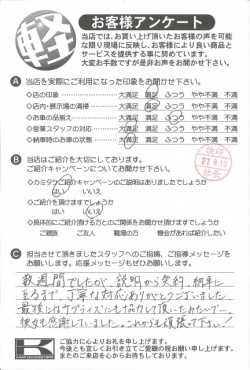 軽
お客様アンケート
当店では、お買い上げ頂いたお客様の声を可能
な限り現場に反映し、お客様により良い商品と
サービスを提供する事に努めています。
大変お手数ですが是非お声をお聞かせ下さい。
A 当店を実際にご利用になった印象をお聞かせ下さい。
◇店の印象 大満足 満足 ふつう やや不満 不満
◇店内・展示場の清掃 大満足 満足 ふつう やや不満 不満
◇お車の品揃え 大満足 満足 ふつう やや不満 不満
◇営業スタッフの対応 大満足 満足 ふつう やや不満 不満
◇納車時のお車の状態 大満足 満足 ふつう やや不満 不満
B 当店はご紹介を大切にしております。
ご紹介キャンペーンについてお聞かせ下さい。
◇カミタケご紹介キャンペーンのご説明はありましたでしょうか
はい いいえ
◇ご紹介を頂けますでしょうか
はい いいえ
◇具体的にご紹介頂ける方とのご関係をお聞かせ頂けますでしょうか
ご親族 ご友人 職場の方 機会があれば紹介したい
27.8.10
社長
C 担当させて頂きましたスタッフへのご指摘、ご指導メッセージを
お願いします。応援メッセージもぜひお願いします。
数週間でしたが、説明から契約、納車に
至るまで、丁寧な対応ありがとうございました。
最後にはサプライズにも協力して頂いたみたいで…
彼女も感謝していました。これからも頑張って下さい！
K
ご協力に心よりお礼を申し上げます。
今後とも宜しくお引き立てご愛顧の程お願い申し上げます。
またのご来店を心からお待ちしております。